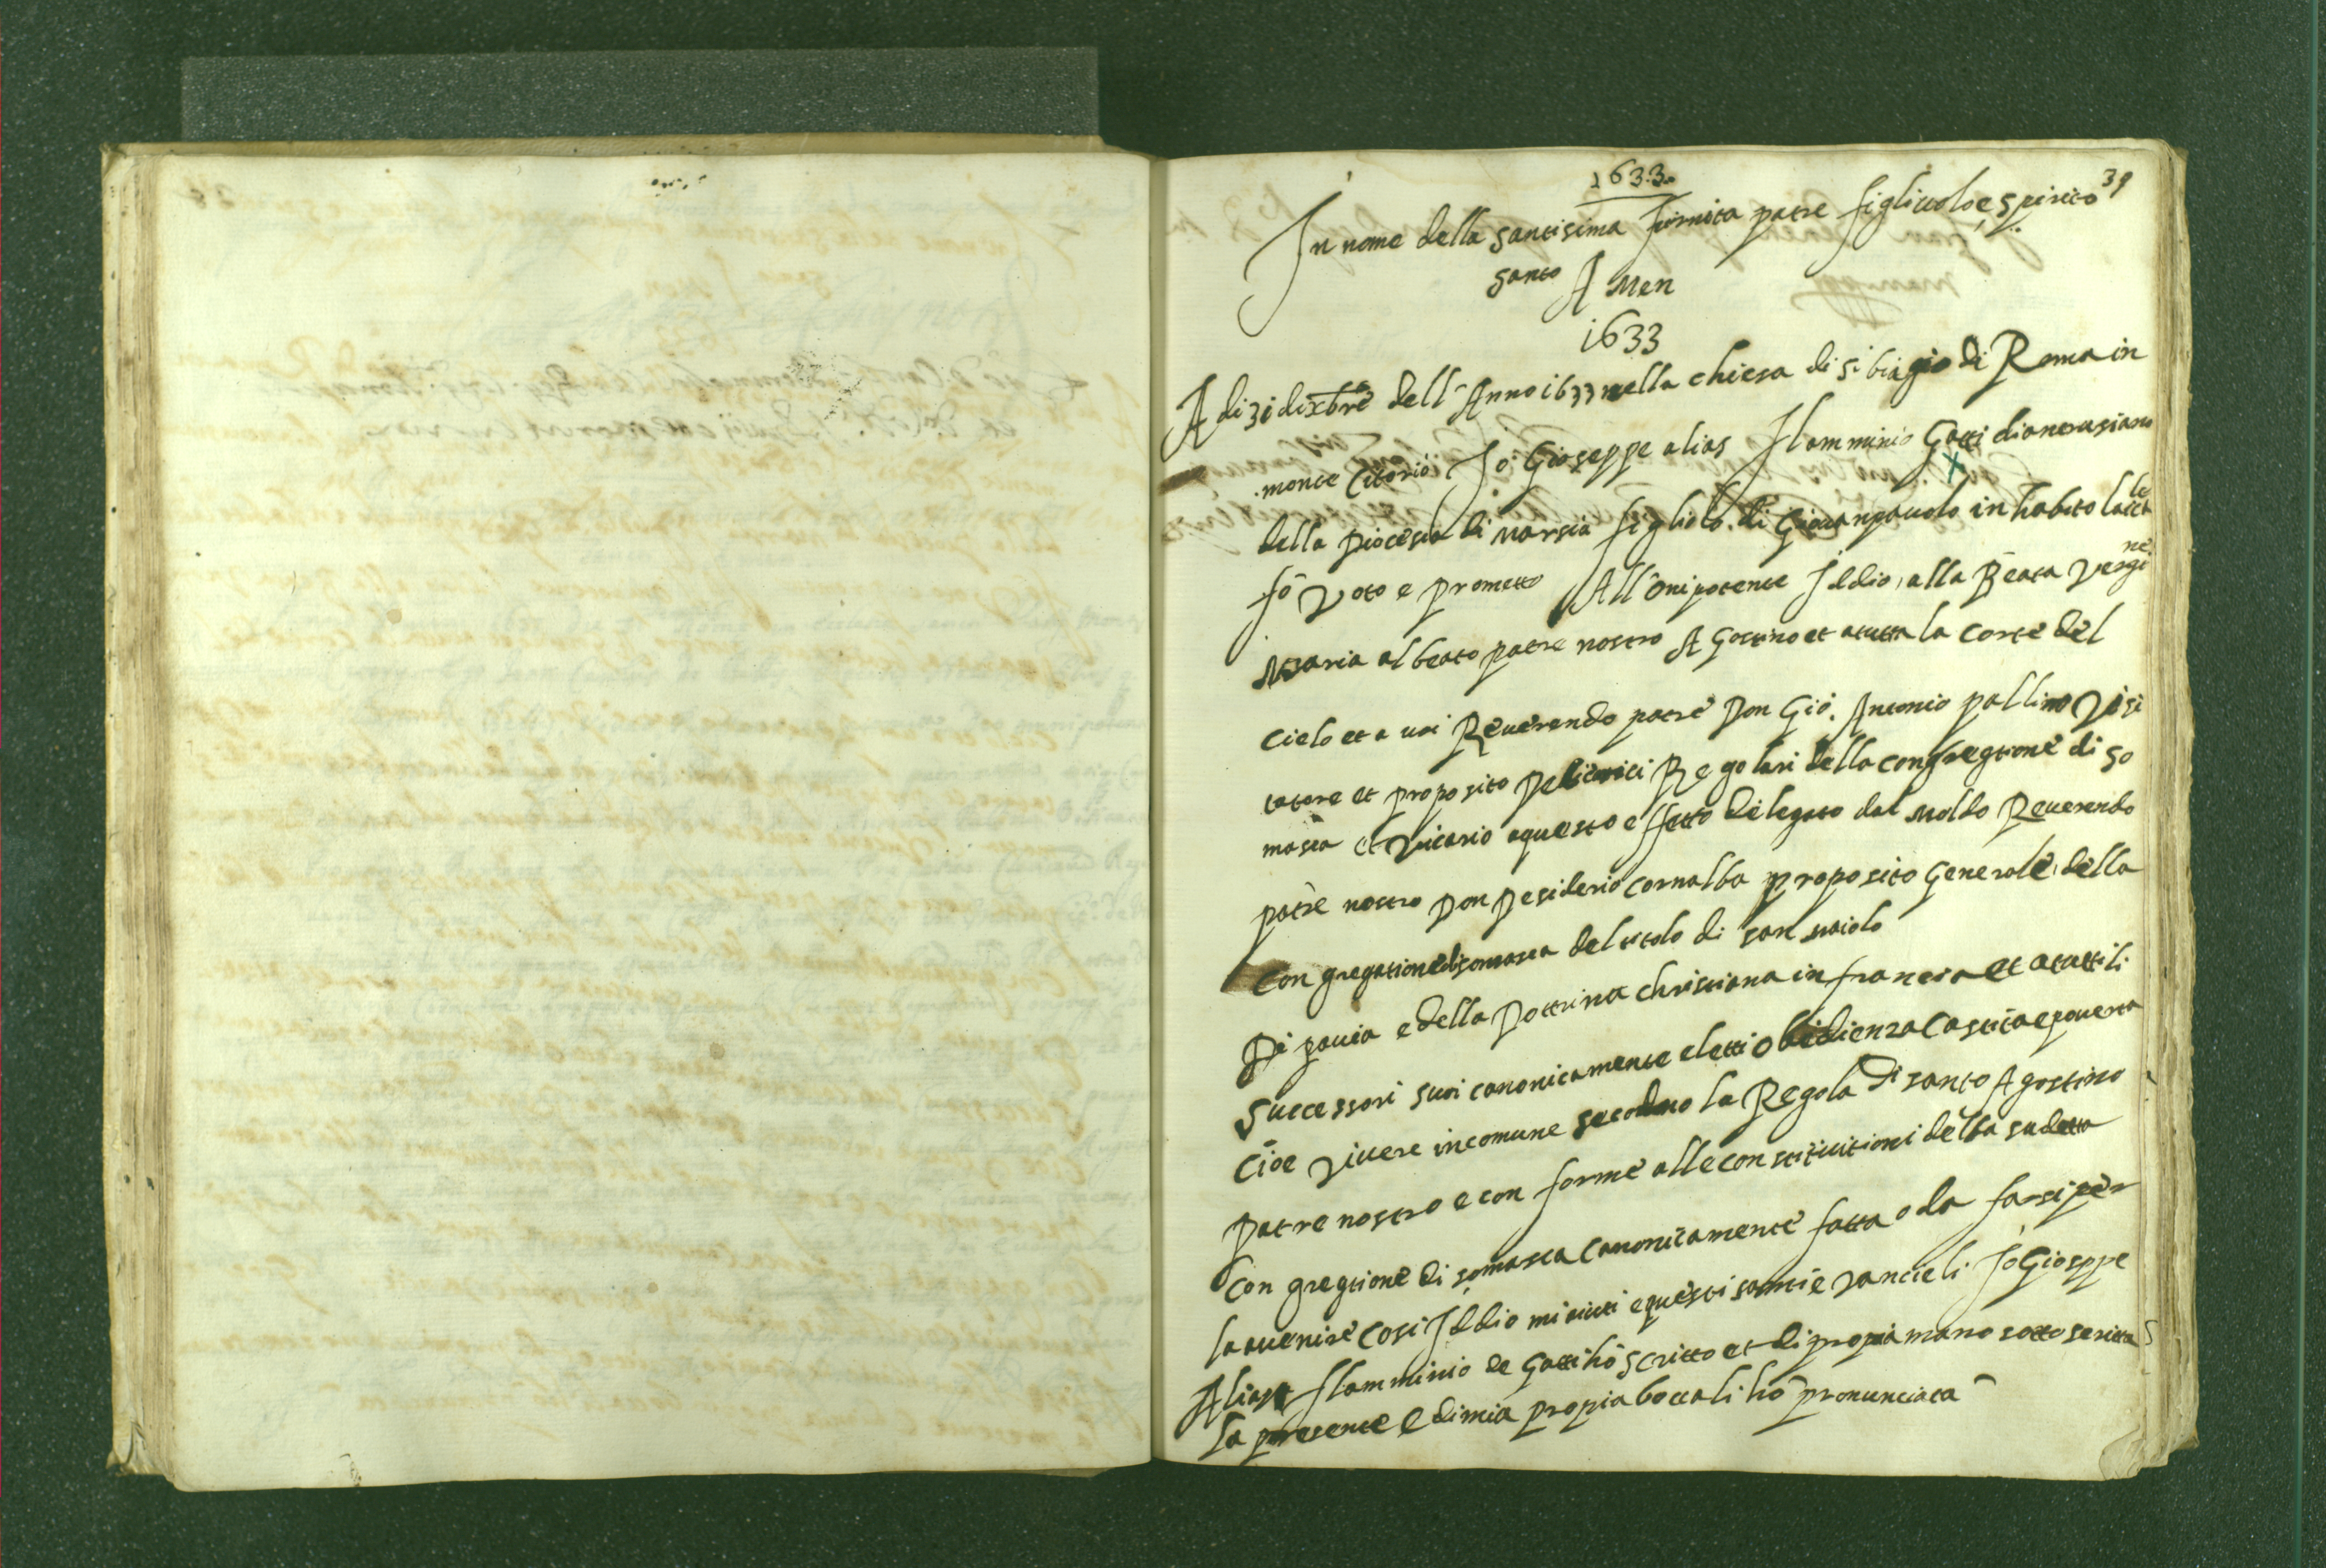 1633.
39
In nome della santisima Trinita patre figliuolo e spirito
santo A Men
1633
A di 31 dixbre dell'Anno 1633 nella chiesa di s. biagio di Roma in
monte Citorio Io Gioseppe alias Flamminio Gatti
della Diocesia di Marsia figliolo di Giovanpauolo in habito laicale
fo Voto e prometto All'Onipotente Iddio, alla Beata Vergine
Maria al beato patre nostro A Gostino et atutta la corte del
cielo et a uoi Reuerendo patre Don Gio. Antonio pallino Visi
tatore et proposito De Regolari della congregtione di So
masca et Vicario aquesto effetto delegato dal Molto Reuerendo
patre nostro Don Desiderio Cornalba proposito Generale della
Con gregatione di somasca del titolo di san maiolo
Di pauia e della Dottrina christiana in francia et atutti li
Successori suoi canonicamente eletti obidienza Castita e pouerta
Cioe viuere in comune la Regola di santo Agostino
Patre nostro e con forme alle constitutioni della sudetta
Con gregtione di somasca Canonicamente fatta o da farsi per
la auenire Cosi Iddio mi aiuti e questi santi e vancieli Io Gioseppe
Alias Flamminio de Gatti ho scritto et di propia mano sotto scritta
la presente e di mia propia bocca li ho pronunciata